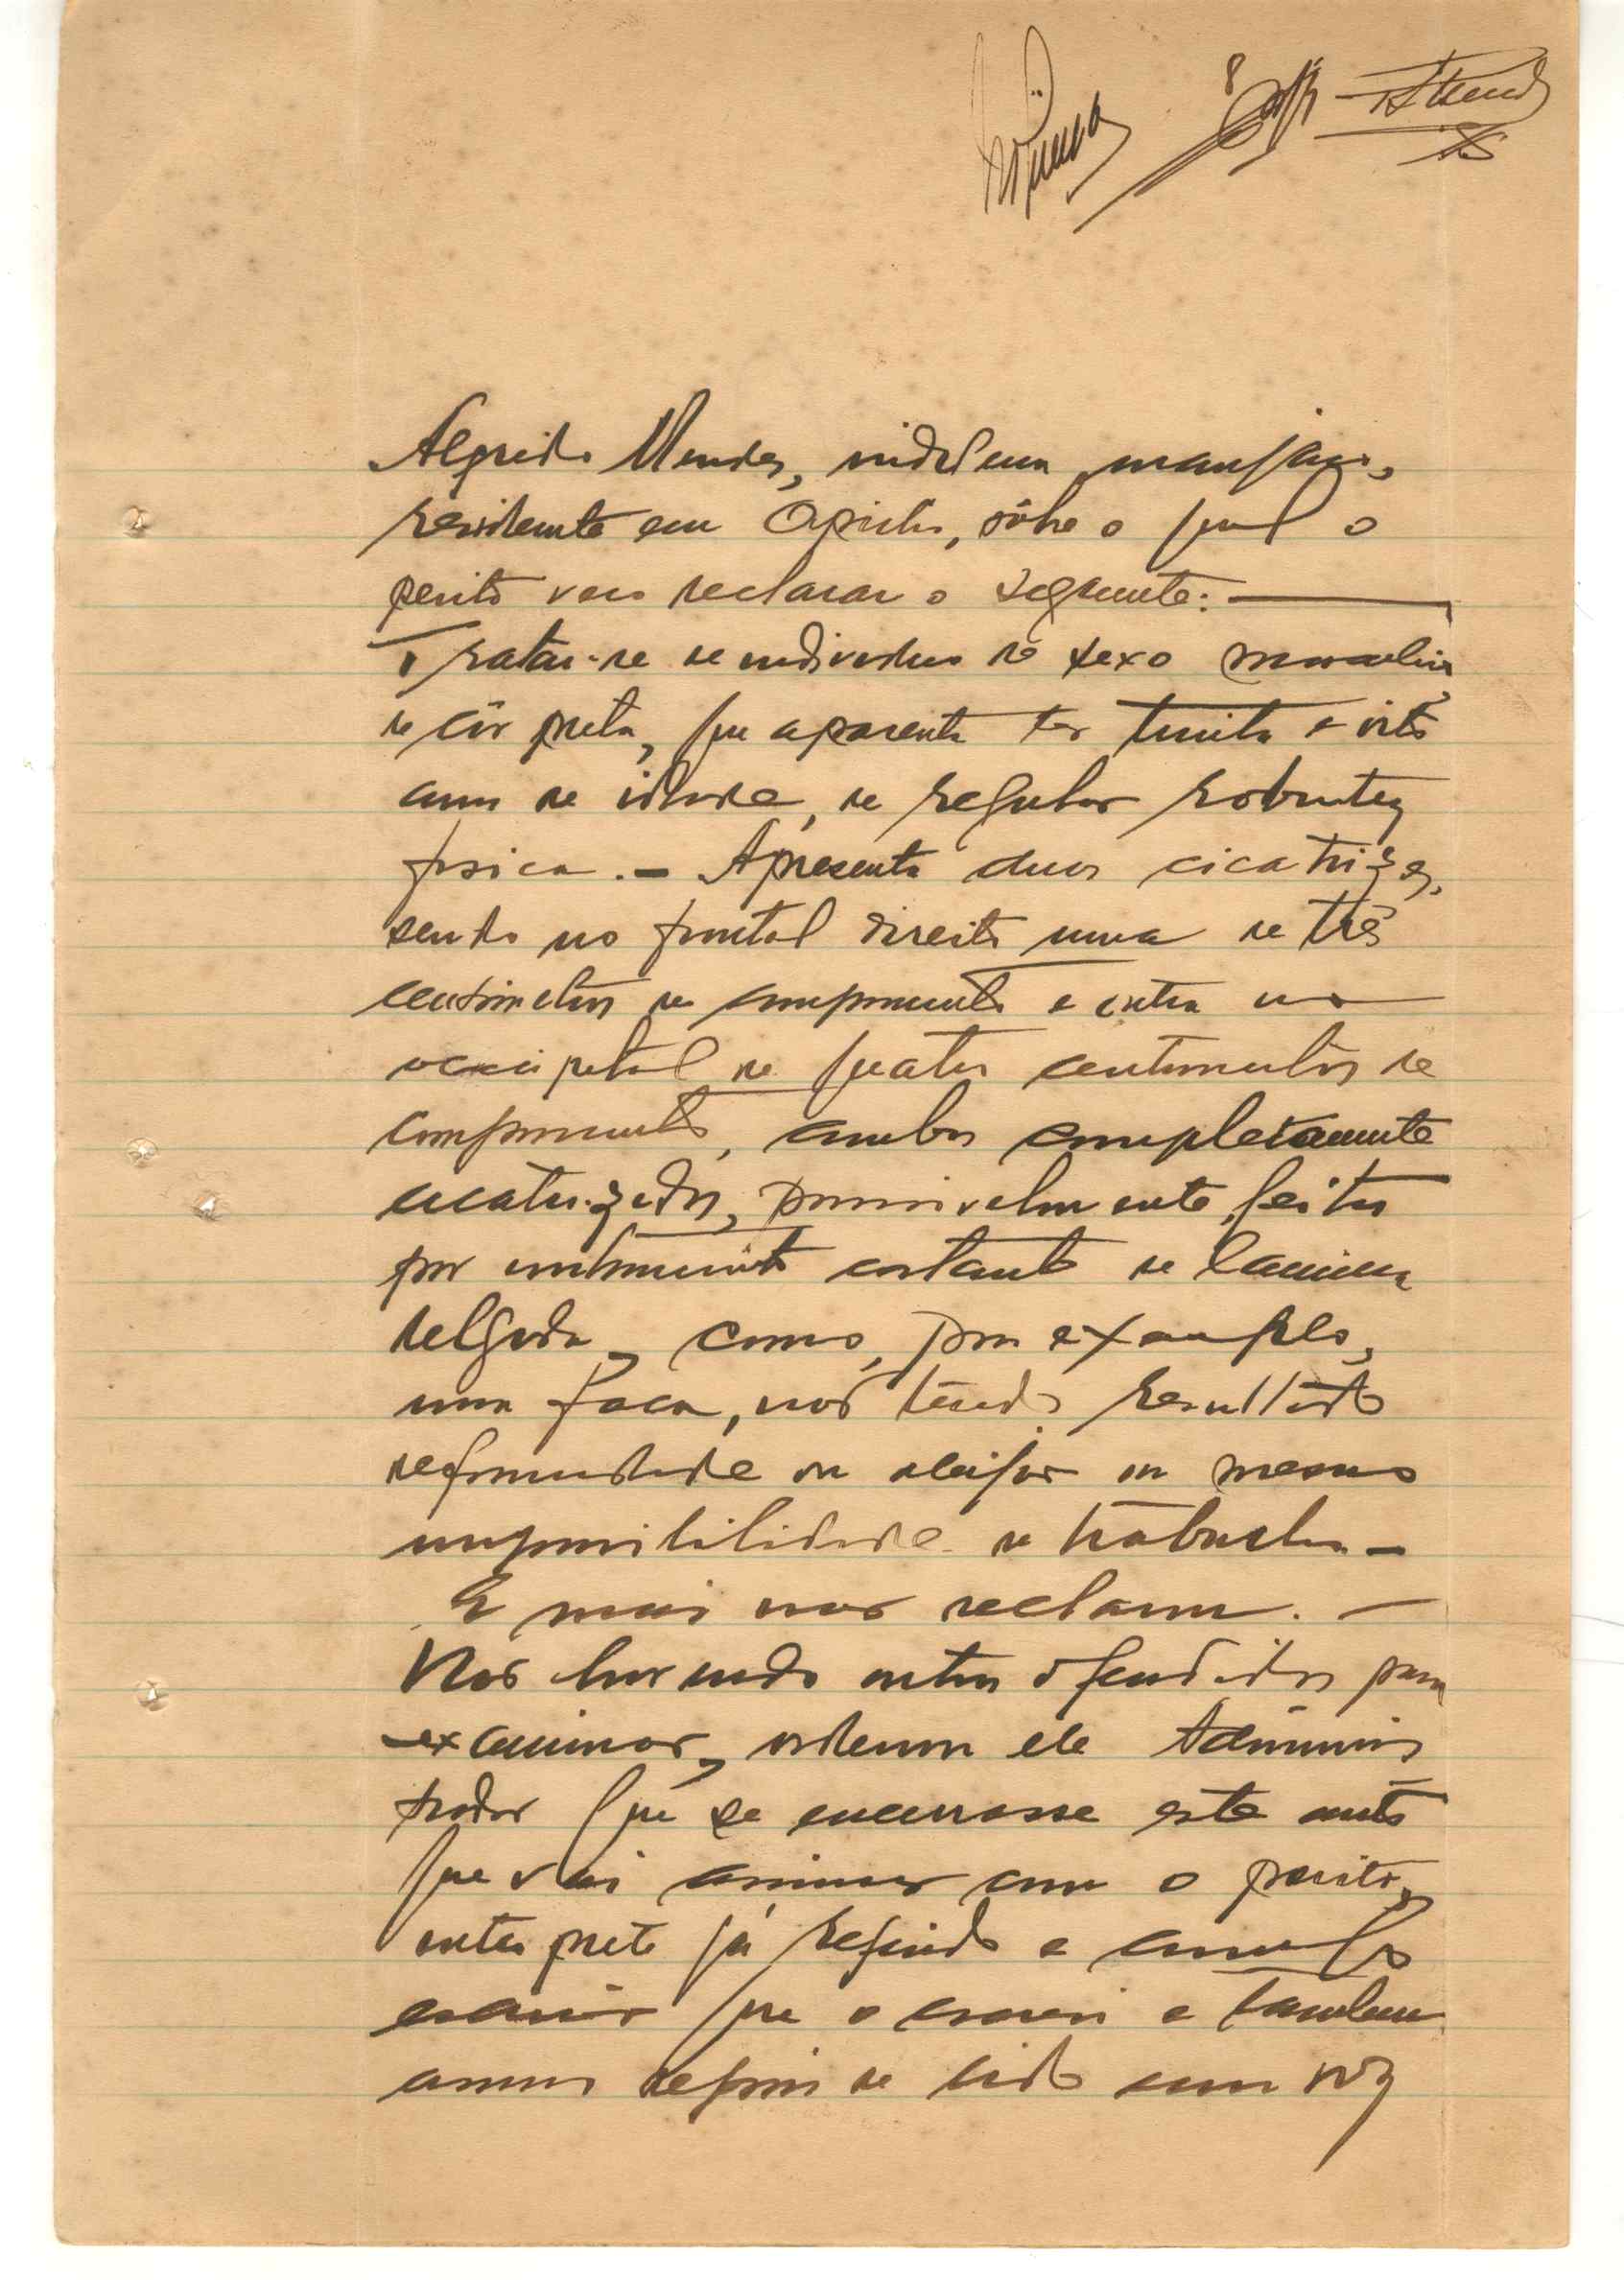 8
Alfredo Mendes, indigena manjaco,
residente em sôbre o qual o
perito vem declarar o seguinte:
Tratar-se de individuo do sexo masculino
de côr preta, que aparenta ter trinta e oito
anos de idade, de regular robustez
fisica.- Apresenta duas cicatrizes,
sendo no frontal direito uma de três
centimetros de comprimento e outra no
occipital de quatro centimetros de
comprimento, ambas completamente
cicatrizadas, possivelmente feitas
por instrumento cortante de lamina
delgada, como, por exemplo,
uma faca, não tendo resultado
deformidade ou aleijão ou mesmo
impossibilidade de trabalho.-
E mais não declarou.-
Não havendo outros ofendidos para
examinar, ordenou ele Adminis
trador que se encerrasse este auto
que vai assinar com o perito,
interprete já referido e comigo
escrivão que o escrevi e tambem
assino depois de lido em voz